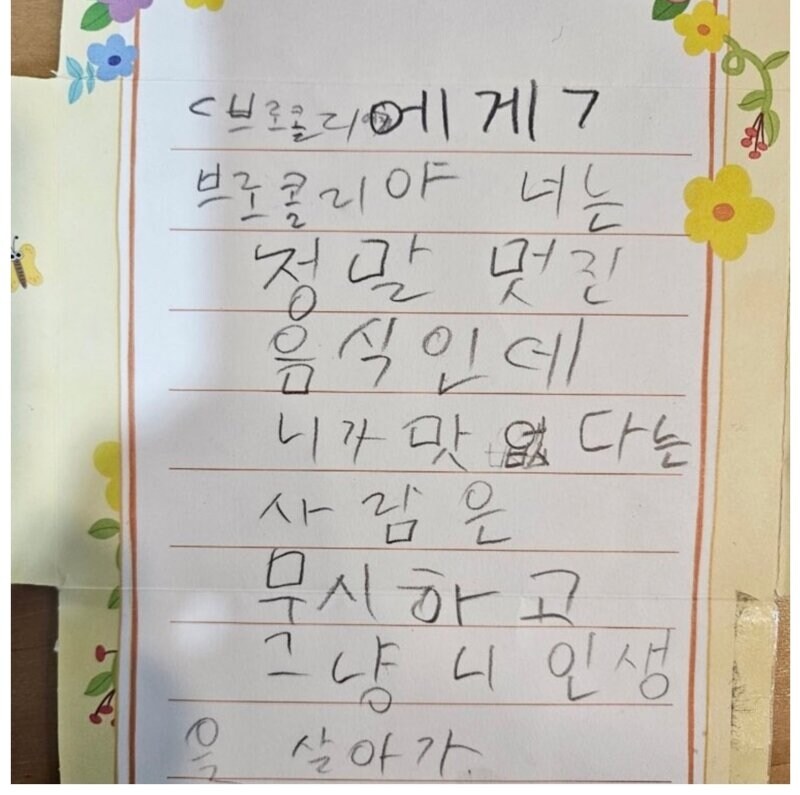 <브로콜리에게>
브로콜리야 너는
정말 멋진
음식인데
니가 맛없다는
사람은
무시하고
그냥 니 인생
을 살아가.